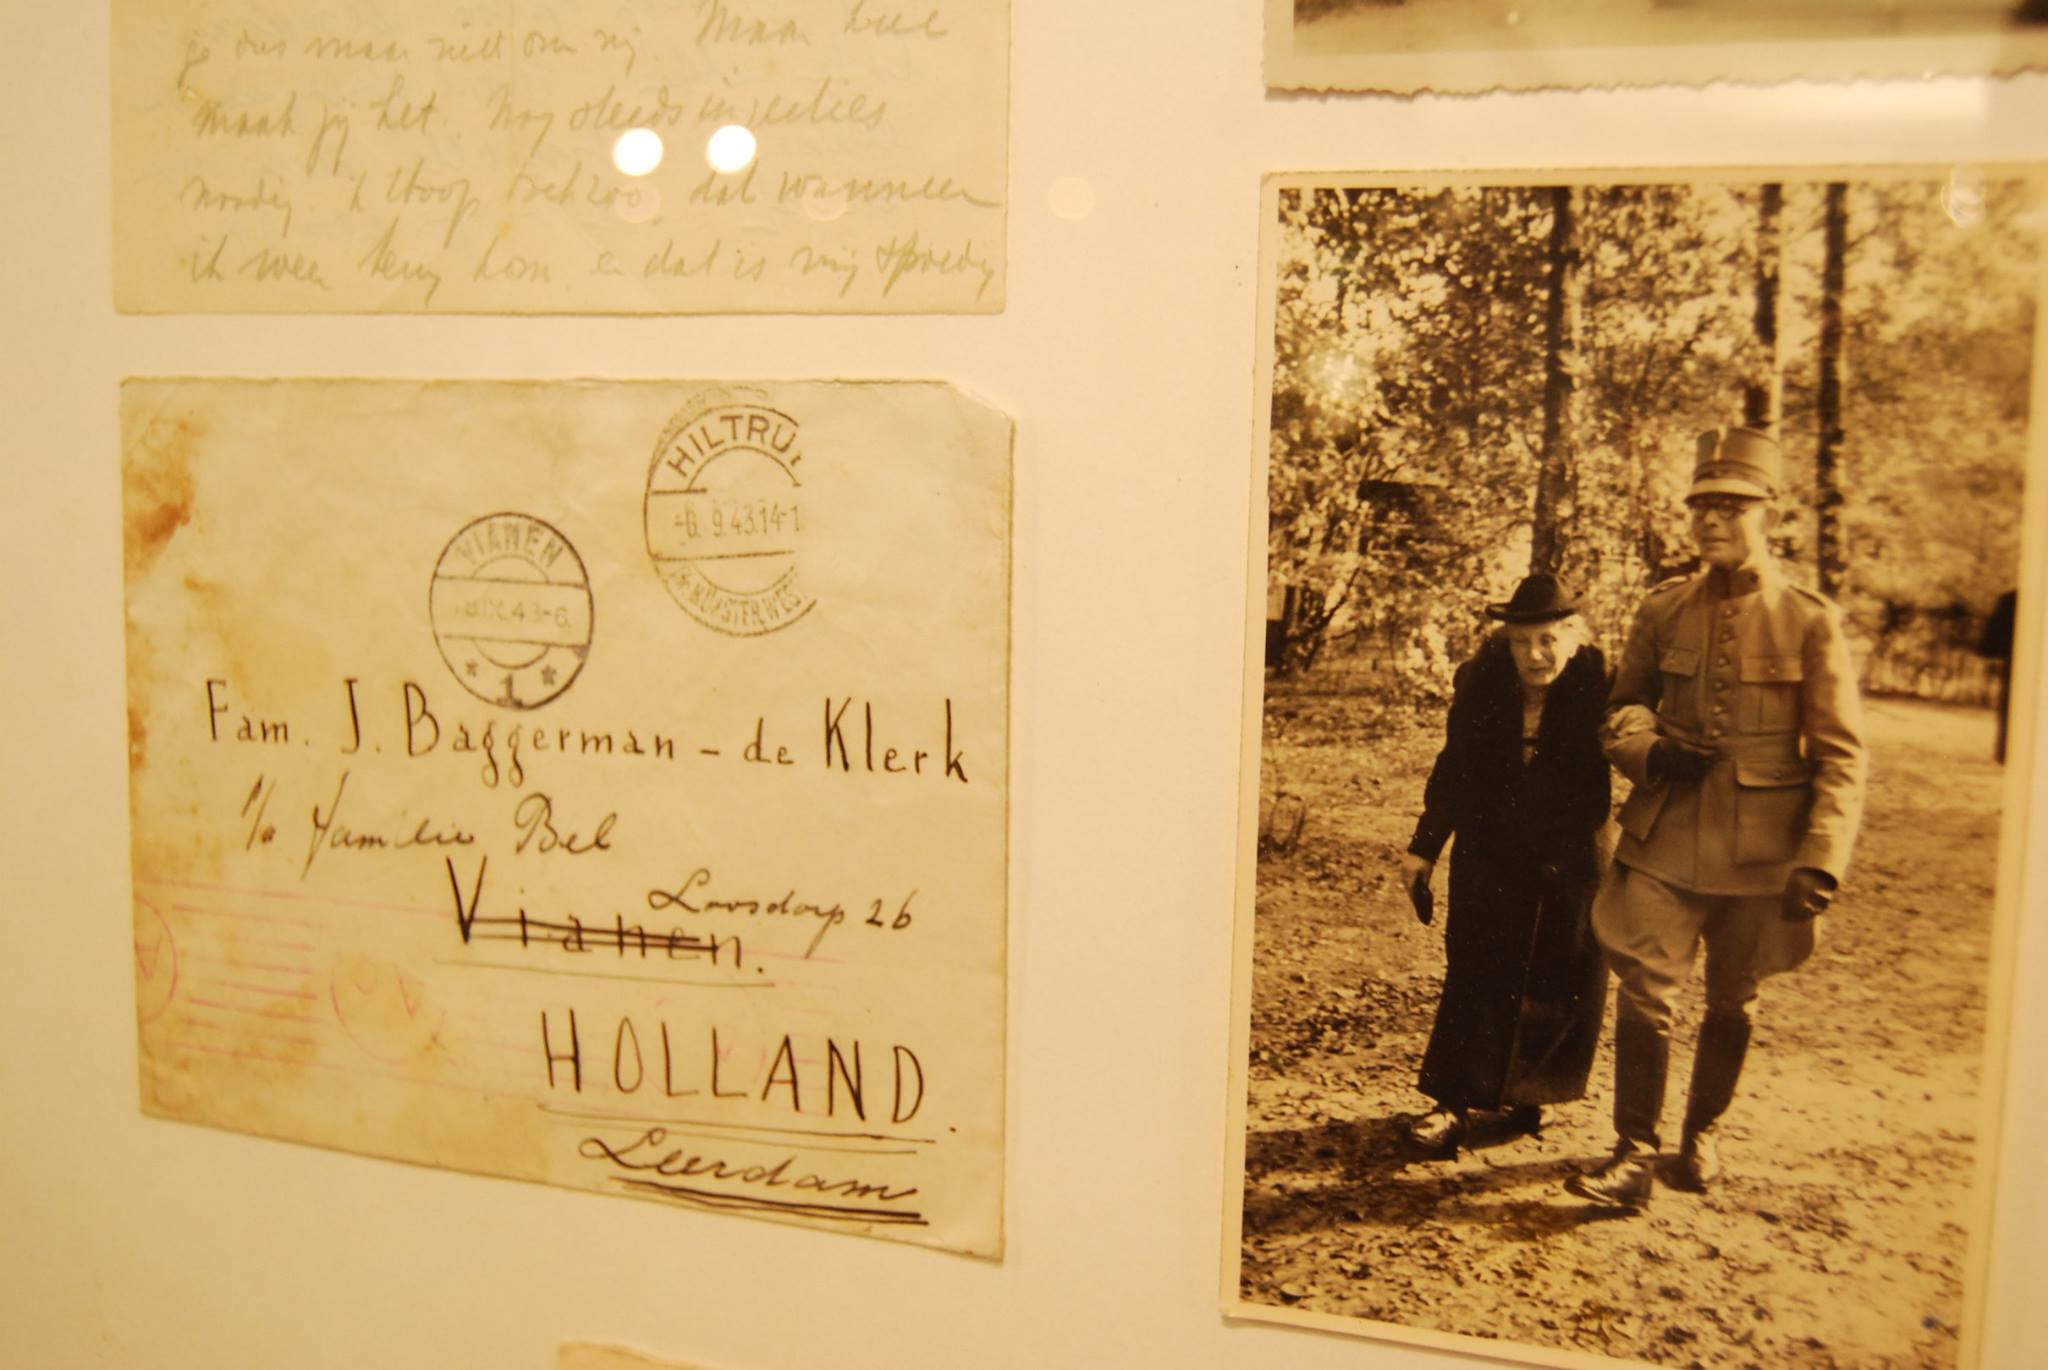 je dus maar niet om mij. Maar hoe
maak jij het. Nog steeds injecties
noodig. 'k Hoop dat wanneer
ik weer terug kom en dat is mij spoedig
HILTRU
-6. 9.43.14-1
MÜNSTER, WES
VIANEN
IX. 43-6.
* 1 *
Fam. J. Baggerman - de Klerk
p/a Familie Bel
Loosdorp 26
Vianen.
HOLLAND.
Leerdam